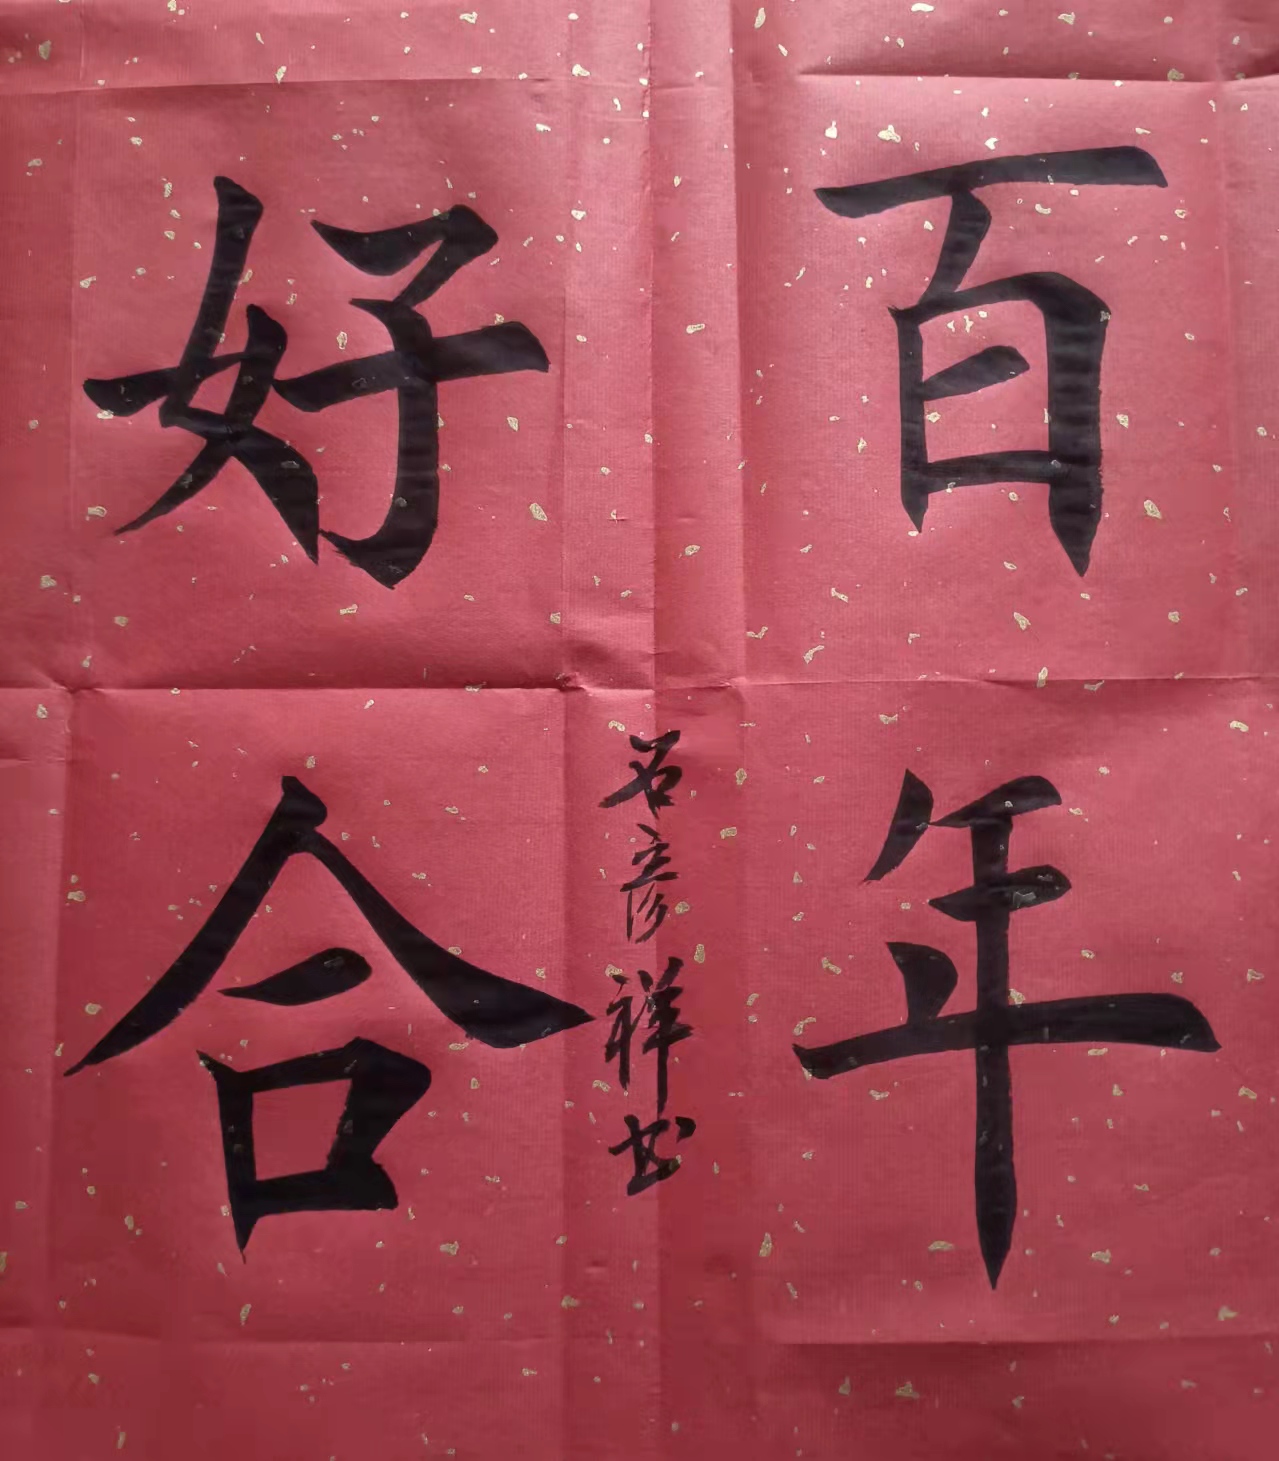 百年
好合
石彦祥书